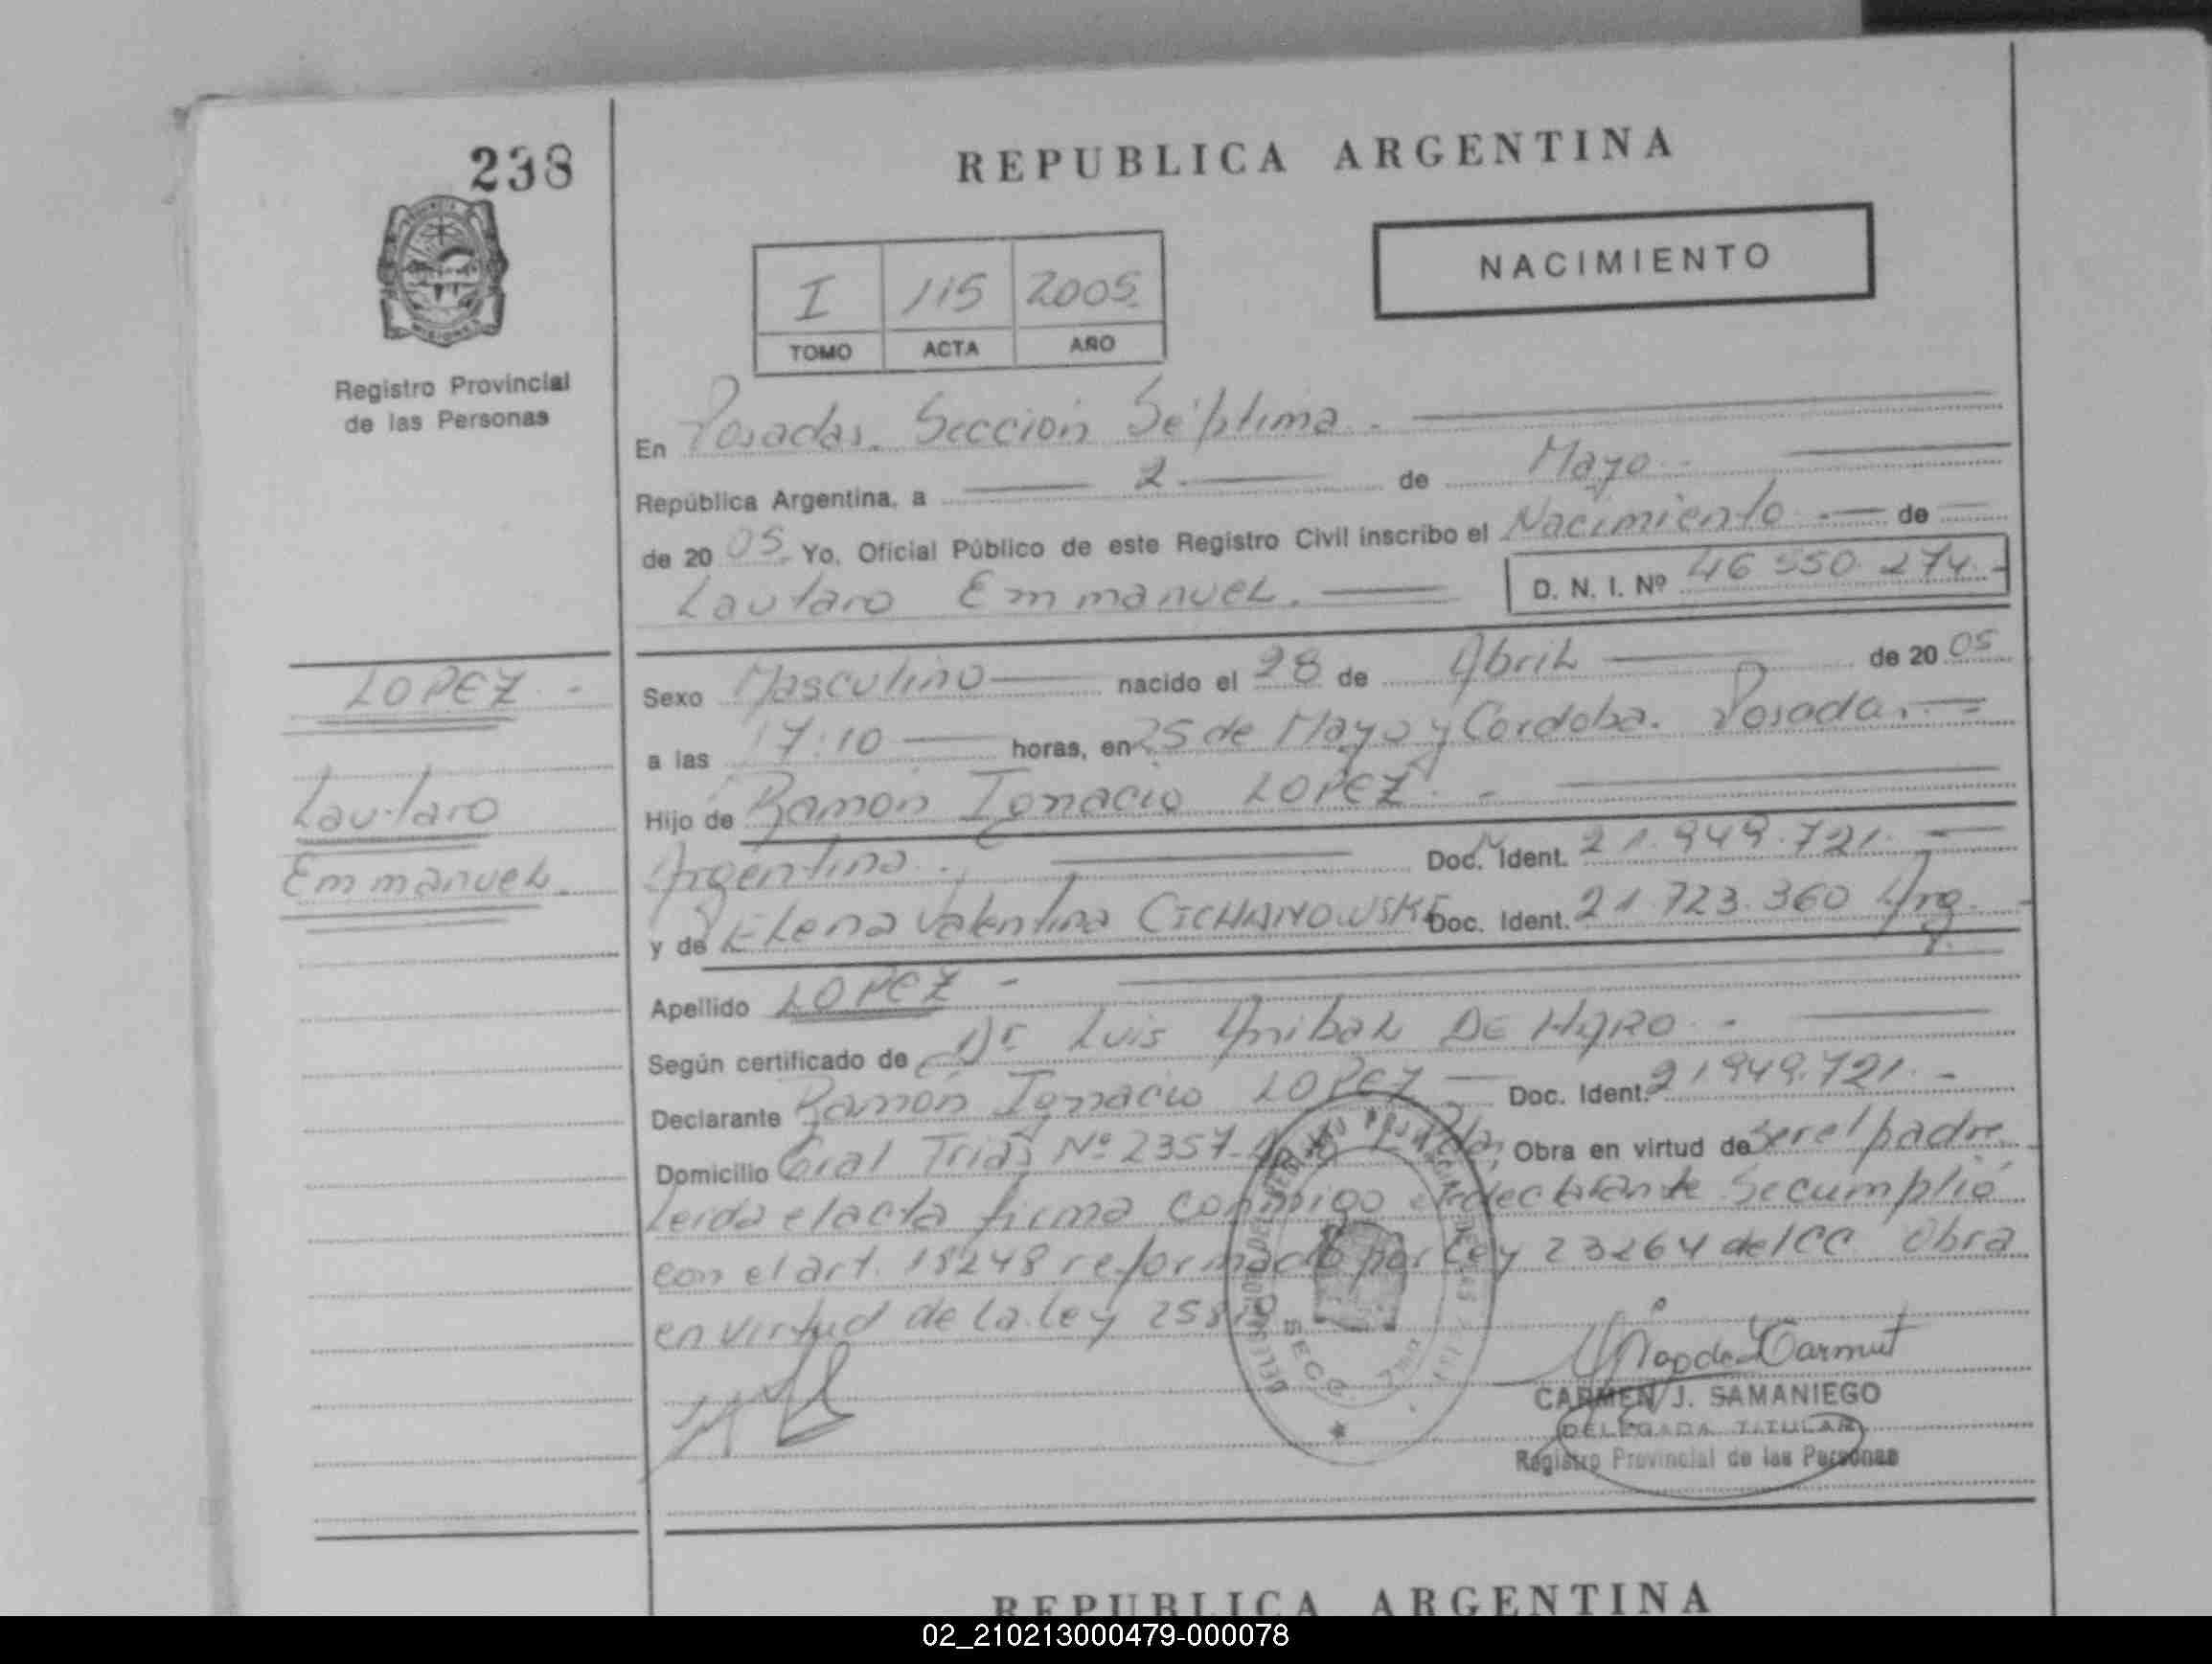 238
REPUBLICA ARGENTINA
NACIMIENTO
I 115 2005
TOMO ACTA AÑO
Registro Provincial
de las Personas
En Posadas. Sección Séptima.
República Argentina, a 2. de Mayo
de 20 05. Yo, Oficial Público de este Registro Civil inscribo el Nacimiento de
Lautaro Emmanuel. D. N. I. Nº 46 550 274.
LOPEZ
Lautaro
Emmanuel
Sexo Masculino nacido el 28 de Abril de 20 05
a las 17:10 horas, en 25 de Mayo y Cordoba. Posadas
Hijo de Ramón Ignacio LOPEZ.
Argentino. Doc. Ident. 21.949.721.
y de Elena Valentina CICHANOWSKI Doc. Ident. 21.723.360 Arg.
Apellido LOPEZ
Según certificado de Dr Luis Anibal DE HARO
Declarante Ramón Ignacio LOPEZ Doc. Ident. 21949.721.
Domicilio Gral Trias Nº 2357 Obra en virtud de ser el padre
Leida el acta firma conmigo el declarante Se cumplió
con el art. 18248 reformado por Ley 23264 del CC Obra
en virtud de la ley
CARMEN J. SAMANIEGO
DELEGADA TITULAR
Registro Provincial de las Personas
REPUBLICA ARGENTINA
02_210213000479-000078